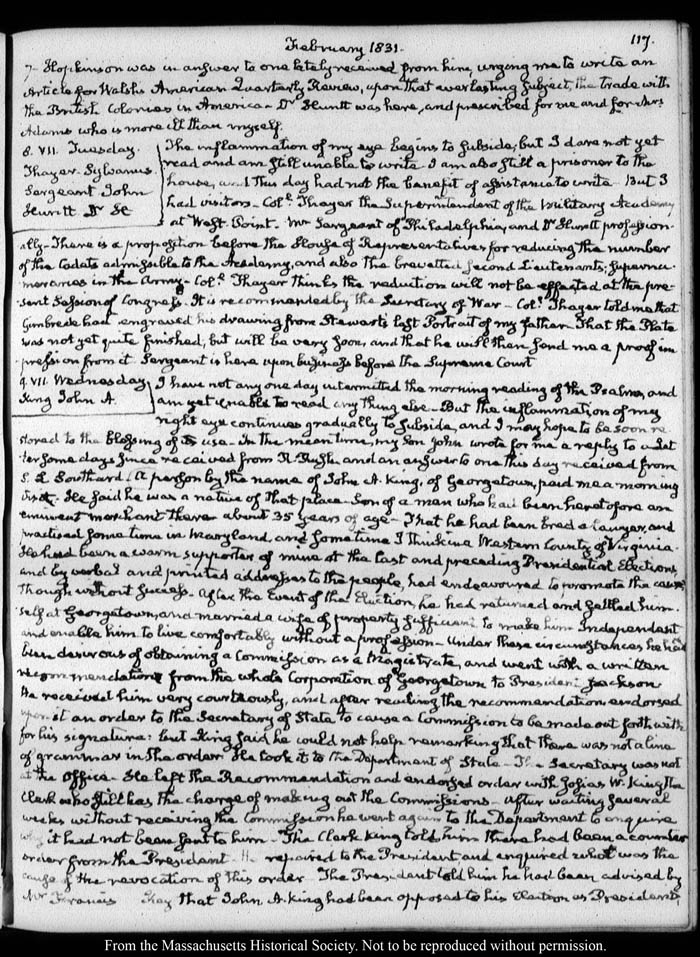 February 1831.
117.
7- Hopkinson was in answer to one lately received from him, urging me to write an
Article for Walsh's American Quarterly Review, upon that everlasting subject, the trade with
the British Colonies in America - Dr. Huntt was here, and prescribed for me and for Mrs
Adams who is more ill than myself.
8. VII. Tuesday.
Thayer. Sylvanus
Sergeant John
Huntt Dr H
The inflammation of my eye begins to subside, but I dare not yet
read and am still unable to write - I am also still a prisoner to the
house, and this day had not the benefit of assistance to write - But I
had visitors - Colt. Thayer the Superintendent of the Military Academy
at West-Point. Mr Sergeant of Philadelphia, and Dr Huntt profession-
ally - There is a proposition before the House of Representatives for reducing the number
of the Cadets admissible to the Academy, and also the brevetted second Lieutenants, supernu-
meraries in the Army - Colt. Thayer thinks the reduction will not be effected at the pre-
sent Session of Congress. It is recommended by the Secretary of War - Colt. Thayer told me that
Gimbrede had engraved his drawing from Stewart's last Portrait of my father - That the Plate
was not yet quite finished, but will be very soon, and that he will then send me a proof im-
pression from it. Sergeant is here upon business before the Supreme Court
9. VII. Wednesday
King John A.
I have not any one day intermitted the morning reading of the Psalms, and
am yet unable to read any thing else - But the inflammation of my
right eye continues gradually to subside, and I may hope to be soon re-
stored to the blessing of its use - In the mean time, my Son John wrote for me a reply to a Let-
ter some days since received from R. Rush and an answer to one this day received from
S. L. Southard. A person by the name of John A. King, of Georgetown, paid me a morning
visit. He said he was a native of that place - Son of a man who had been heretofore an
eminent merchant there - about 35 years of age - That he had been bred a lawyer, and
practised some time in Maryland, and sometime I think in a Western County of Virginia.
He had been a warm supporter of mine at the last and preceding Presidential Elections,
and by verbal and printed addresses to the people, had endeavoured to promote the cause,
though without success - After the Event of the Election, he had returned and settled him-
self at Georgetown, and married a wife of property sufficient to make him Independent
and enable him to live comfortably without a profession - Under these circumstances he had
been desirous of obtaining a Commission as a Magistrate, and went with a written
recommendation from the whole Corporation of Georgetown to President Jackson
He received him very courteously, and after reading the recommendation endorsed
upon it an order to the Secretary of State to cause a Commission to be made out forthwith
for his signature: but King said he could not help remarking that there was not a line
of grammar in the order. He took it to the Department of State - The Secretary was not
at the office - He left the Recommendation and endorsed order with Josias W. King the
Clerk who still has the charge of making out the Commissions - After waiting several
weeks without receiving the Commission he went again to the Department to enquire
why it had not been sent to him - The Clerk King told him there had been a counter
order from the President - He repaired to the President and enquired what was the
cause of the revocation of this order - The President told him he had been advised by
Mr Francis Key that John A. King had been opposed to his Election as President,
From the Massachusetts Historical Society. Not to be reproduced without permission.